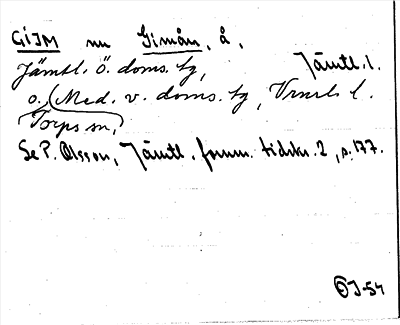 GIJM nu Gimån, å.
Jämtl. ö. doms. tg, Jämtl. l.
o. Med. v. doms. tg, Vrnrl. l.
Torps sn,
Se P. Olsson, Jämtl. fornm. tidskr. 2, s. 177.
J-54